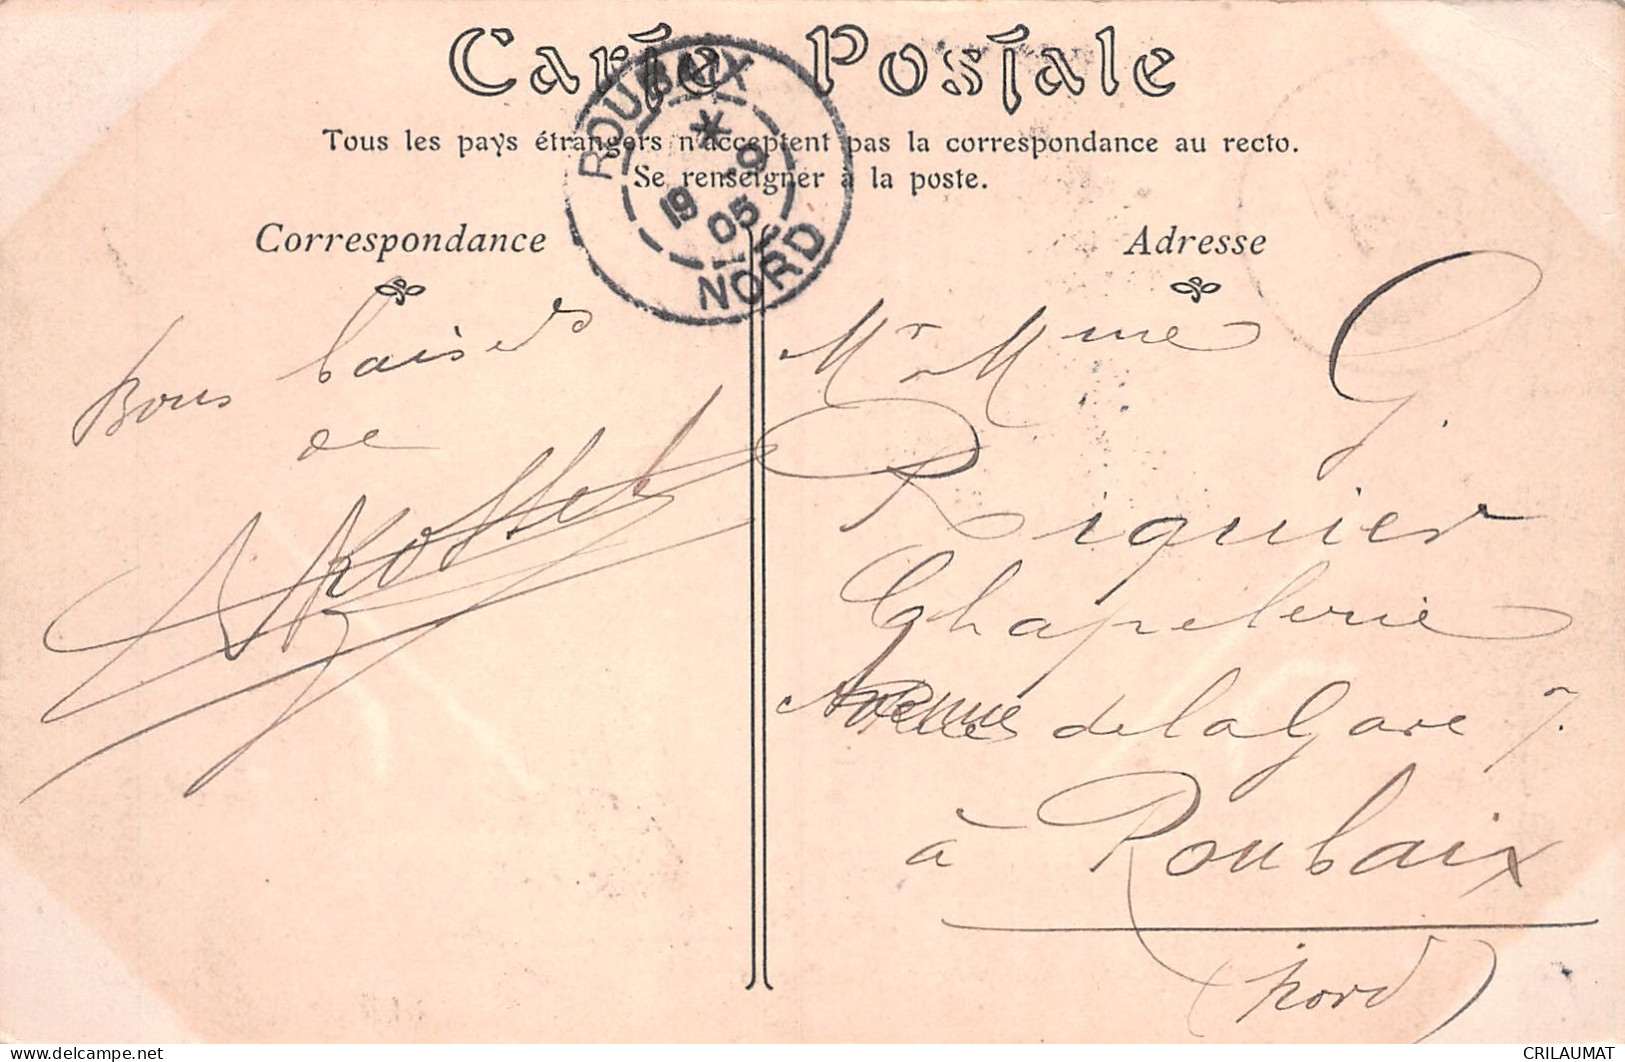 Carte Postale
Tous les pays étrangers n'acceptent pas la correspondance au recto.
Se renseigner à la poste.
ROUBAIX
*
19 -9
05
NORD
Correspondance
Bons baisers
de
Adresse
Mr Mme G.
Riquier
Chapelerie
Avenue de la Gare 7.
à Roubaix
(Nord)
delcampe.net
CRILAUMAT